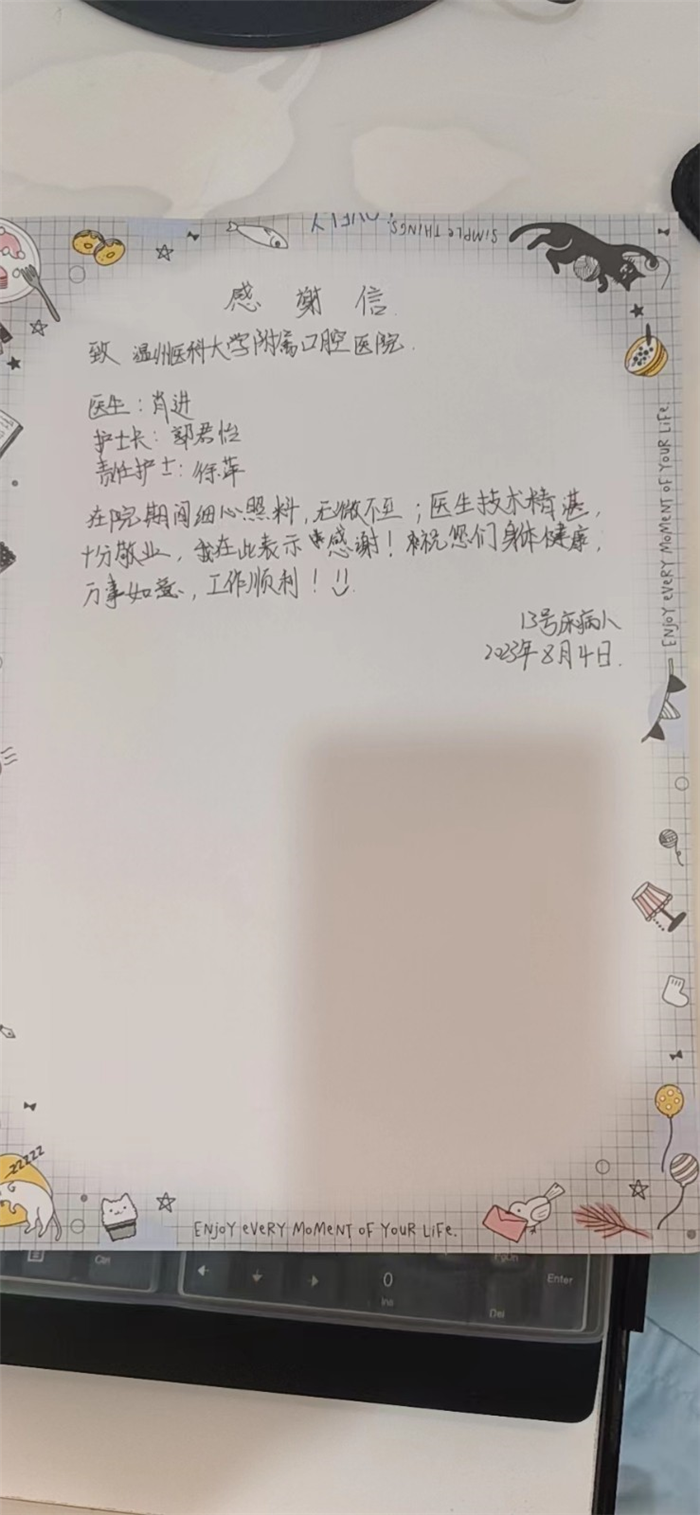 SIMPLE THINGS,
感谢信.
致 温州医科大学附属口腔医院.
医生:肖进
护士长:郭君怡
责任护士:徐萍
在院期间细心照料,无微不至;医生技术精湛,
十分敬业,我在此表示 感谢!祝您们身体健康,
万事如意,工作顺利!
13号床病人
2023年8月4日.
ENJOY EVERY MOMENT OF YOUR LIFE.
ZZZZZ
ENJOY EVERY MOMENT OF YOUR LIFE.
Ctrl
0
Ins
Del
Enter